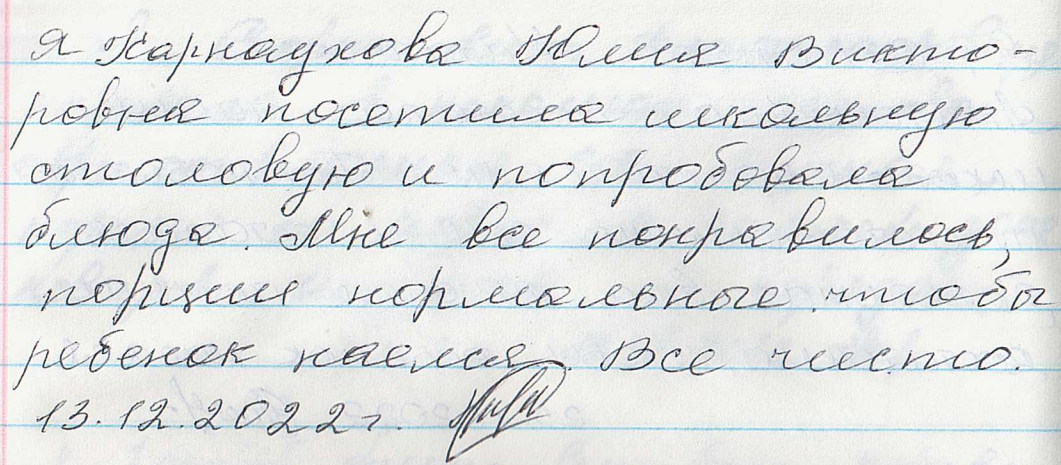 я Карнаухова Юлия Викто-
ровна посетила школьную
столовую и попробовала
блюда. Мне все понравилось,
порции нормальные чтобы
ребенок наелся. Все чисто.
13.12.2022г.